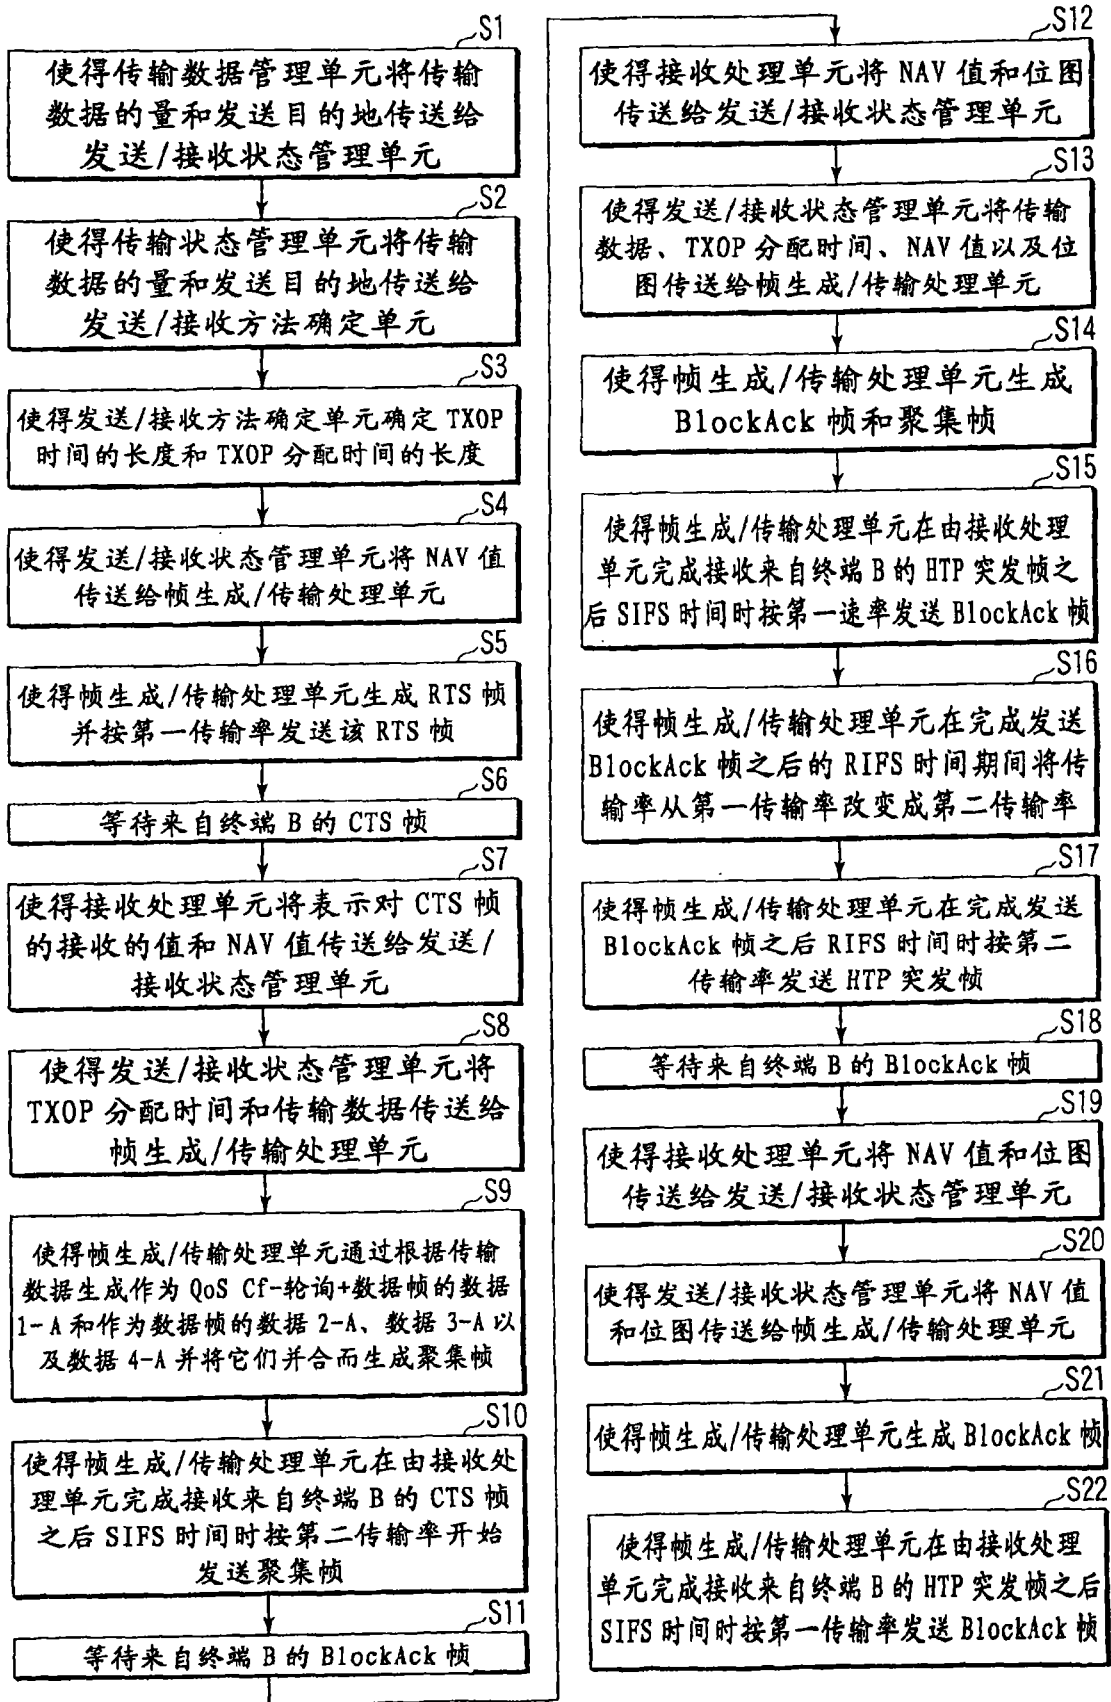 S1
使得传输数据管理单元将传输
数据的量和发送目的地传送给
发送/接收状态管理单元
S2
使得传输状态管理单元将传输
数据的量和发送目的地传送给
发送/接收方法确定单元
S3
使得发送/接收方法确定单元确定 TXOP
时间的长度和 TXOP 分配时间的长度
S4
使得发送/接收状态管理单元将 NAV 值
传送给帧生成/传输处理单元
S5
使得帧生成/传输处理单元生成 RTS 帧
并按第一传输率发送该 RTS 帧
S6
等待来自终端 B 的 CTS 帧
S7
使得接收处理单元将表示对 CTS 帧
的接收的值和 NAV 值传送给发送/
接收状态管理单元
S8
使得发送/接收状态管理单元将
TXOP 分配时间和传输数据传送给
帧生成/传输处理单元
S9
使得帧生成/传输处理单元通过根据传输
数据生成作为 QoS Cf-轮询+数据帧的数据
1-A 和作为数据帧的数据 2-A、数据 3-A 以
及数据 4-A 并将它们并合而生成聚集帧
S10
使得帧生成/传输处理单元在由接收处
理单元完成接收来自终端 B 的 CTS 帧
之后 SIFS 时间时按第二传输率开始
发送聚集帧
S11
等待来自终端 B 的 BlockAck 帧
S12
使得接收处理单元将 NAV 值和位图
传送给发送/接收状态管理单元
S13
使得发送/接收状态管理单元将传输
数据、TXOP 分配时间、NAV 值以及位
图传送给帧生成/传输处理单元
S14
使得帧生成/传输处理单元生成
BlockAck 帧和聚集帧
S15
使得帧生成/传输处理单元在由接收处理
单元完成接收来自终端 B 的 HTP 突发帧之
后 SIFS 时间时按第一速率发送 BlockAck 帧
S16
使得帧生成/传输处理单元在完成发送
BlockAck 帧之后的 RIFS 时间期间将传
输率从第一传输率改变成第二传输率
S17
使得帧生成/传输处理单元在完成发送
BlockAck 帧之后 RIFS 时间时按第二
传输率发送 HTP 突发帧
S18
等待来自终端 B 的 BlockAck 帧
S19
使得接收处理单元将 NAV 值和位图
传送给发送/接收状态管理单元
S20
使得发送/接收状态管理单元将 NAV 值
和位图传送给帧生成/传输处理单元
S21
使得帧生成/传输处理单元生成 BlockAck 帧
S22
使得帧生成/传输处理单元在由接收处理
单元完成接收来自终端 B 的 HTP 突发帧之后
SIFS 时间时按第一传输率发送 BlockAck 帧